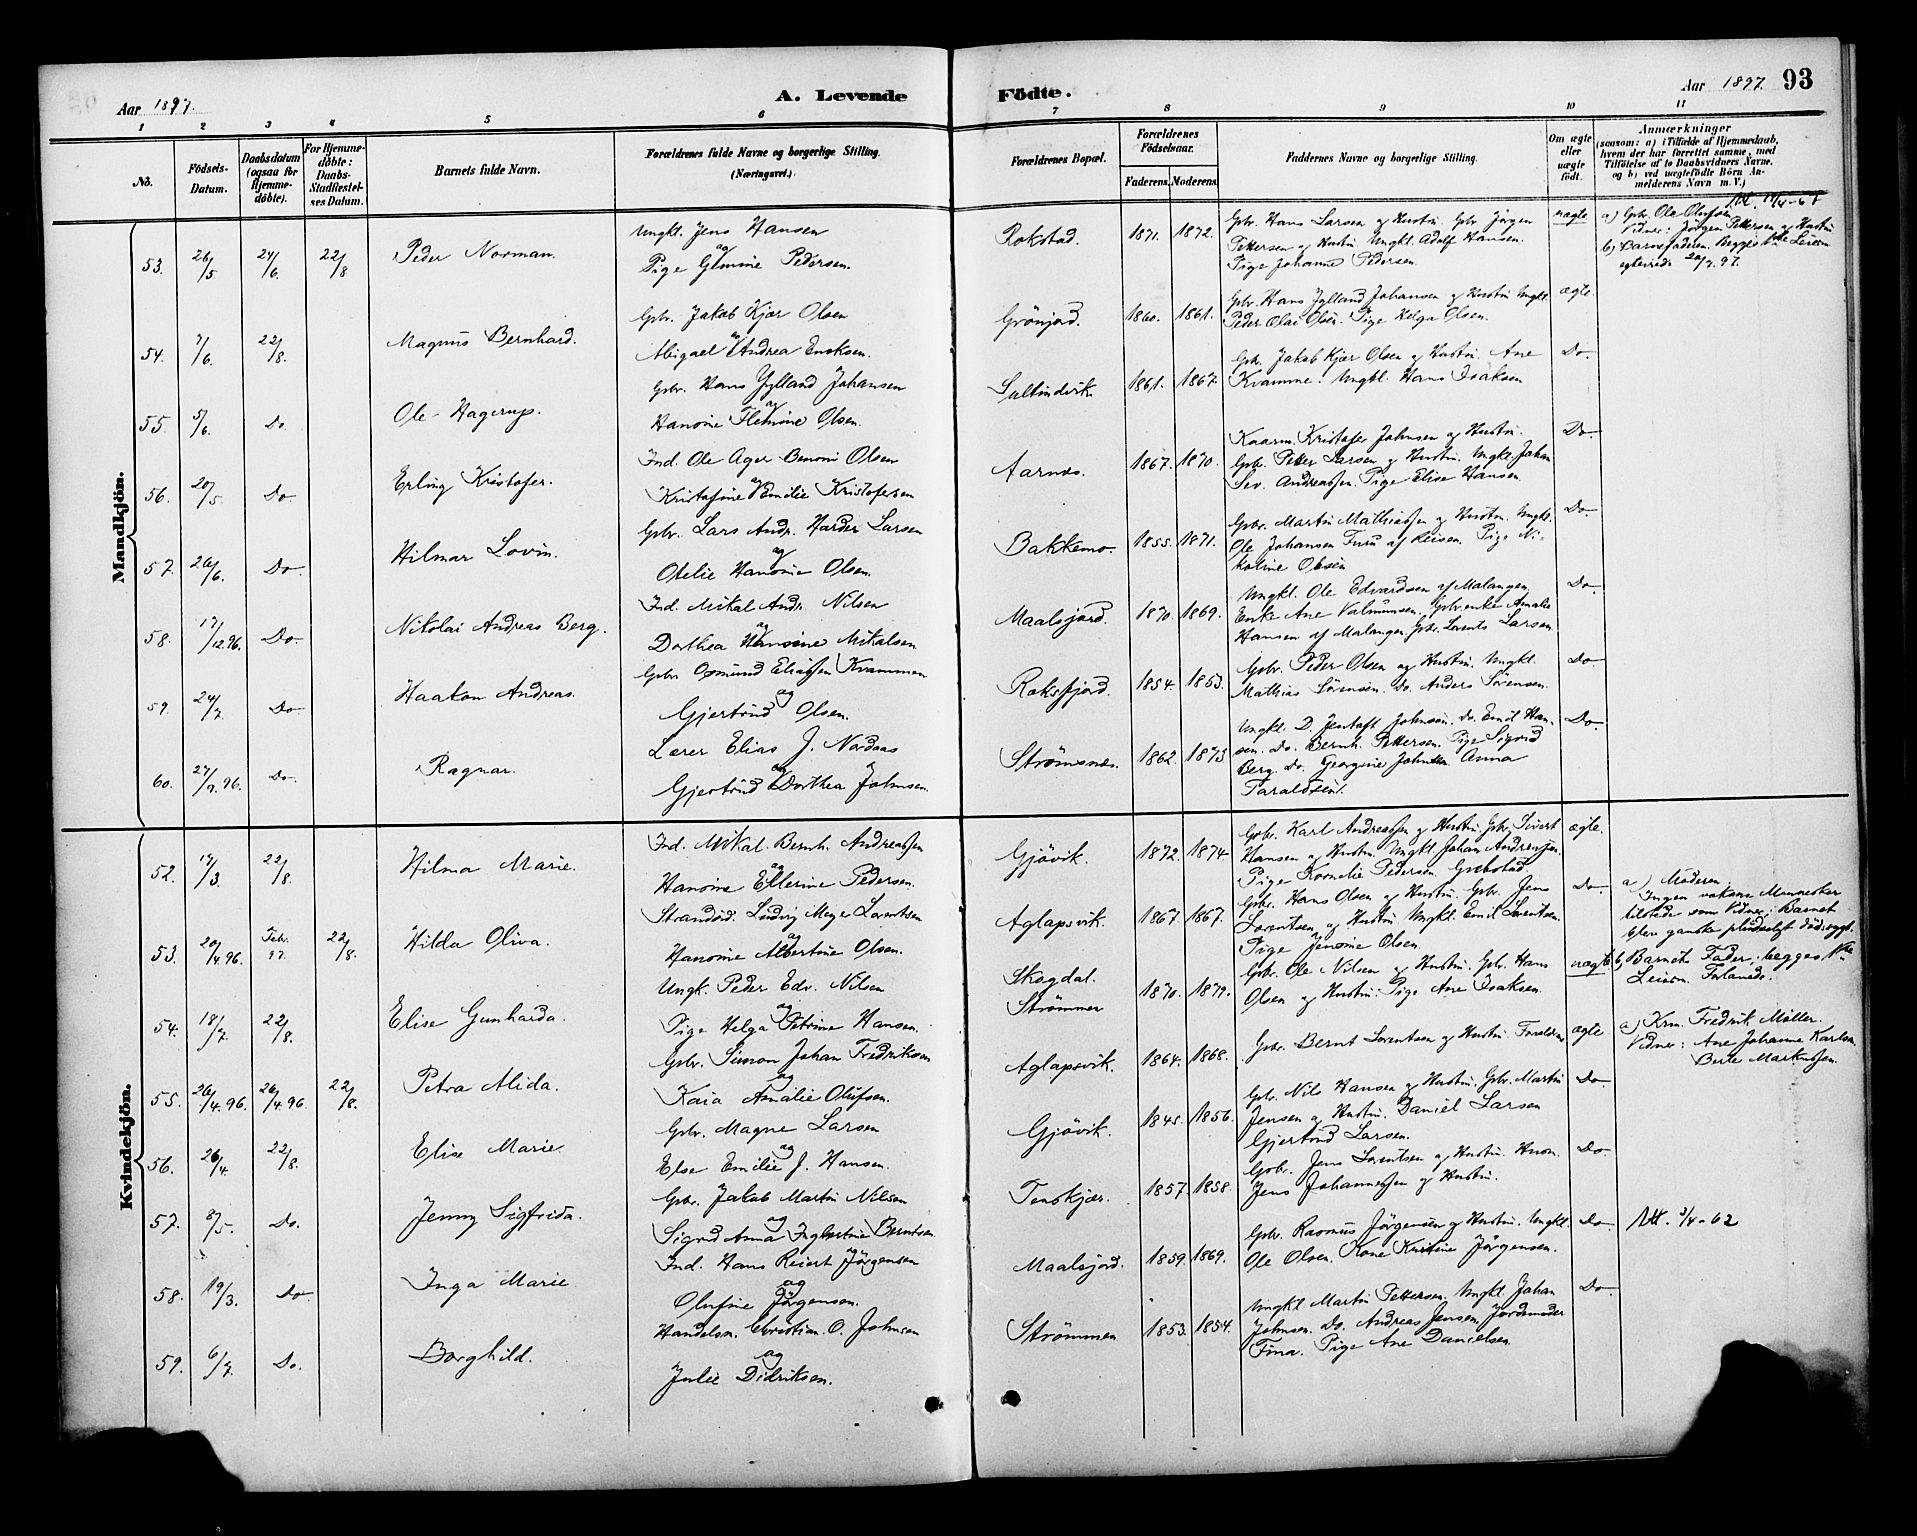 Aar 1897.
A. Levende
Födte.
Aar 1897.
93
1 2 3 4 5 6 7 8 9 10 11
No.
Födsels-
Datum.
Daabsdatum
(ogsaa for
Hjemme-
döbte).
For Hjemme-
döbte:
Daabs-
Stadfæstel-
ses Datum.
Barnets fulde Navn.
Forældrenes fulde Navne og borgerlige Stilling.
(Næringsvei.)
Forældrenes Bopæl.
Forældrenes
Födselsaar.
Faderens.
Moderens.
Faddernes Navne og borgerlige Stilling.
Om ægte
eller
uægte
födt.
Anmærkninger
(saasom: a) i Tilfælde af Hjemmedaab,
hvem der har forrettet samme, med
Tilföielse af to Daabsvidners Navne,
og b) ved uægtefödte Börn An-
melderens Navn m. V.)
Mandkjön.
53. 26/5 24/6 22/8 Peder Norman.
Ungkl. Jens Hansen
og
Pige Pedersen.
Rokstad. 1871. 1872.
Gbr. Hans Larsen og Hustru. Gbr. Jörgen
Pettersen og Hustru. Ungkl. Adolf Hansen.
Pige Johanne Pedersen.
uægte
a) Gbr. Ole Olufsen
Vidner: Jörgen Pettersen og Hustru
b) Barnefaderen. Begges 1ste Leierm.
20/7.97.
54. 7/6. 22/8. Magnus Bernhard.
Gbr. Jakob Kjær Olsen
og
Abigael Andrea Enoksen.
Grönjord. 1860. 1861.
Gbr. Hans Jylland Johansen og Hustru Ungkl.
Peder Olai Olsen. Pige Helga Olsen.
ægte
55. 5/6. Do. Ole Hagerup.
Gbr. Hans Jylland Johansen
og
Hansine Flemine Olsen.
Sultindvik 1861. 1867.
Gbr. Jakob Kjær Olsen og Hustru. Ane
Kvamme. Ungkl. Hans Isaksen
Do.
56. 20/5. Do Erling Kristofer.
Ind. Ole Ager Benoni Olsen
og
Kristofine Emilie Kristofersen
Aarnes. 1867. 1870.
Kaarm. Kristofer Johnsen og Hustru.
Gbr. Petter Larsen og Hustru. Ungkl. Johan
Sev. Andreassen. Pige Elise Hansen.
Do.
57. 26/6. Do. Hilmar Lovin.
Gbr. Lars Andr. Harder Larsen
og
Otelie Hansine Olsen.
Bakkemo. 1855. 1871.
Gbr. Martin Mathiassen og Hustru. Ungkl.
Ole Johansen Furu af Reisen. Pige Ni-
koline Olsen
Do
58. 17/12.96. Do. Nikolai Andreas Berg.
Ind. Mikal Andr. Nilsen
og
Dorthea Hansine Mikalsen
Maalsjord. 1870. 1869.
Ungkl. Ole Edvardsen af Malangen
Enke Ane Valmunsen. Gbr.enke Amalie
Hansen af Malangen Gbr. Lorents Larsen
Do
59. 24/7. Do Haakon Andreas.
Gbr. Osmund Eliassen Kvammen
og
Gjertrud Olsen.
Roksfjord. 1854. 1853.
Gbr. Peder Olsen og Hustru. Ungkl.
Mathias Sörensen. Do. Anders Sörensen.
Do
60. 27/9.96. Do. Ragnar.
Lærer Elias J. Nordaas
og
Gjertrud Dorthea Johnsen.
Strömsnes. 1862. 1873
Ungkl. D. Jentoft Johnsen. Do. Emil Han-
sen. Do. Bernh. Pettersen. Pige Sigrid
Berg. Do. Georgine Johnsen Anna
Taraldsen.
Do.
Kvindekjön.
52. 17/3 22/8. Hilma Marie.
Ind. Mikal Bernh. Andreassen
og
Hansine Ellerine Pedersen.
Gjövik. 1872. 1874.
Gbr. Karl Andreassen og Hustru. Gbr. Sivert
Hansen og Hustru. Ungkl. Johan Andreassen.
Pige Kornelie Pedersen.
ægte.
53. 20/4.96. Febr. 97. 22/8. Hilda Oliva.
Strandsid. Ludvig Meyer Lorentsen
og
Hansine Albertine Olsen.
Aglapsvik. 1867. 1867.
Gbr. Hans Olsen og Hustru. Gbr. Jens
Lorentsen og Hustru. Ungkl. Emil Lorentsen.
Pige Jensine Olsen.
Do.
a) Moderen.
Ingen voksne Mennesker
tilstede som Vidner; Barnet
blev ganske pludseligt dödssygt.
54. 18/7 22/8. Elise Gunharda.
Ungk. Peder Edv. Nilsen
og
Pige Helga Petrine Hansen.
Skogdal.
Strömmen 1870. 1879.
Gbr. Ole Nilsen og Hustru. Gbr. Hans
Olsen og Hustru. Pige Ane Isaksen.
uægte
b) Barnets Fader; begges 1ste
Leierm. Forlovede.
55. 26/4.96. 26/4.96. 22/8. Petra Alida.
Gbr. Simon Johan Fredriksen
og
Kaia Amalie Olufsen.
Aglapsvik. 1864. 1868.
Gbr. Bernt Lorentsen og Hustru. Forældrene
ægte
a) Krm. Fredrik Möller.
Vidner: Ane Johanne Karlsen
Berte Markussen.
56. 26/4 22/8. Elise Marie
Gbr. Magne Larsen
og
Else Emilie J. Hansen.
Gjövik. 1845. 1856.
Gbr. Nils Hansen og Hustru. Gbr. Martin
Jensen og Hustru. Daniel Larsen
Gjertrud Larsen.
Do.
57. 8/5. Do. Jenny Sigfrida.
Gbr. Jakob Martin Nilsen
og
Sigrid Anna Ingbertine Berntsen.
Tenskjær. 1857. 1858.
Gbr. Jens Lorentsen og Hustru. Husm.
Jens Johannessen og Hustru.
Do
58. 19/3. Do Inga Marie
Ind. Hans Reiert Jörgensen
og
Olufine Jörgensen.
Maalsjord. 1859. 1869.
Gbr. Rasmus Jörgensen og Hustru. Ungkl.
Ole Olsen. Kone Kristine Jörgensen.
Do
3/4-62
59. 6/7. Do. Borghild.
Handelsm. Christian O. Johnsen
og
Julie Didriksen.
Strömmen 1853. 1854.
Ungkl Martin Pettersen. Ungkl. Johan
Johnsen. Do. Andreas Jensen. Jordemoder
Fina. Pige Ane Danielsen.
Do.